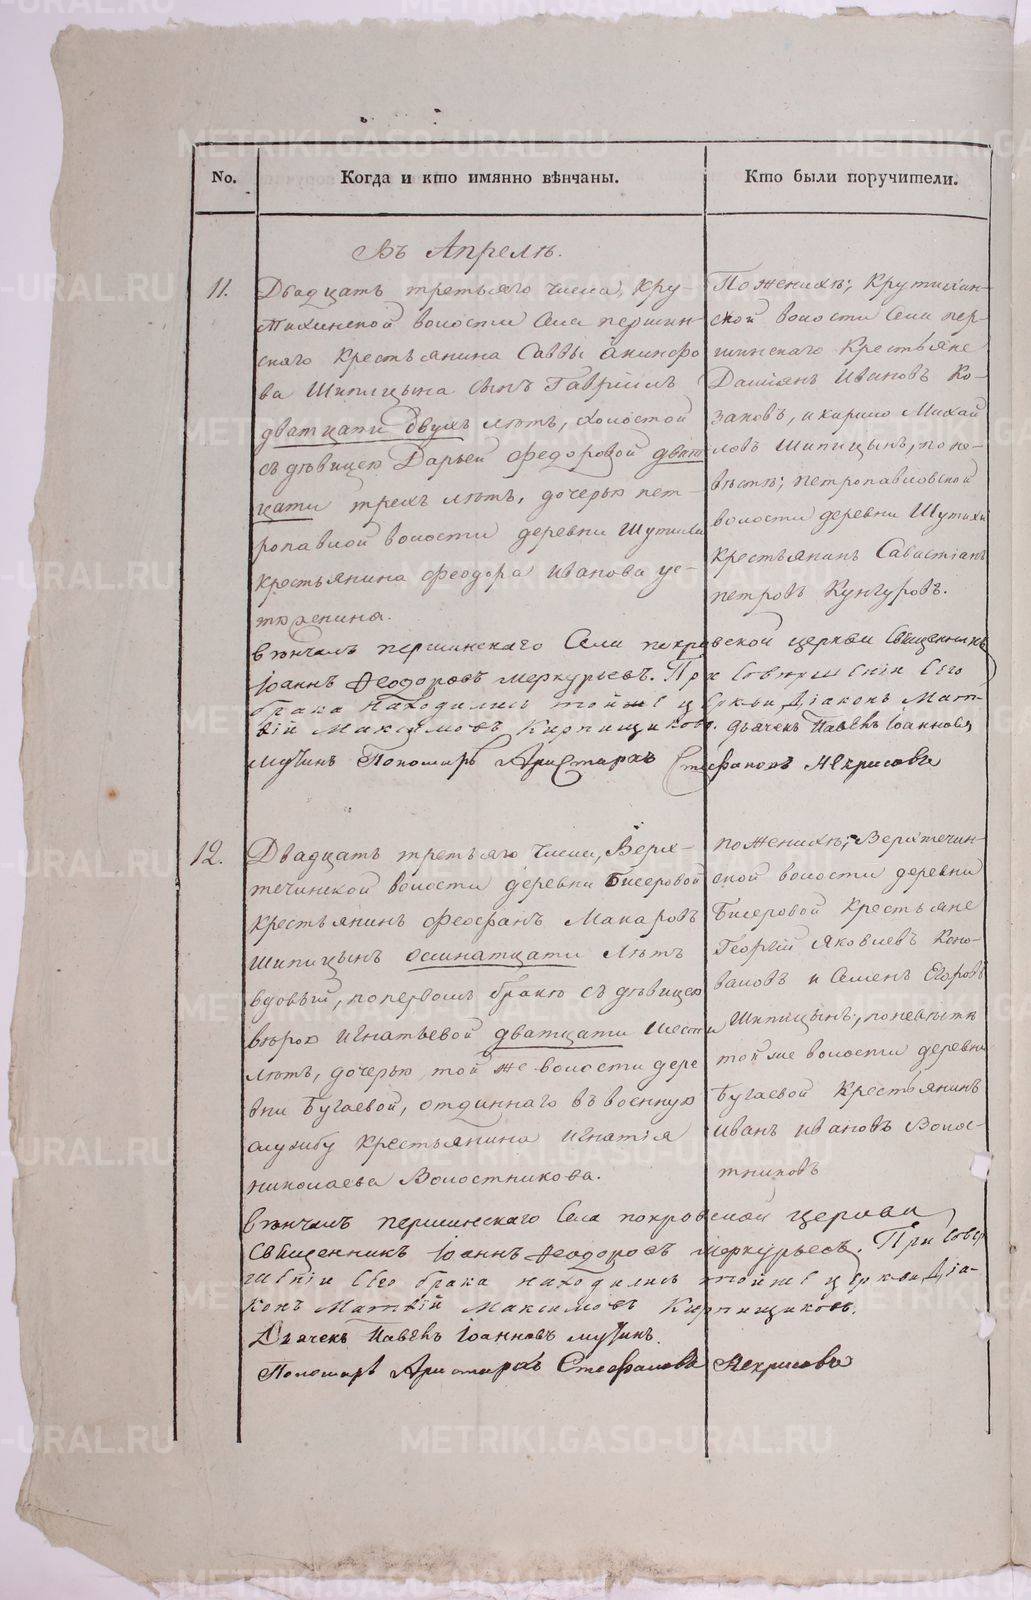 No.
Когда и кто имянно вѣнчаны.
Кто были поручители.
Въ Апрелѣ.
11.
Двадцать третьяго числа, Кру-
тихинской волости Села першин-
скаго Крестьянина Саввы Никифоро
ва Шипицына сынъ Гавріилъ
дватцати двухъ лѣтъ, холостой
съ дѣвицею Дарьей Федоровой дват
цати трехъ лѣтъ, дочерью пет-
ропавлой волости деревни Шутихи
крестьянина Феодора Иванова Ус-
тюжнина.
Поженихѣ; Крутихин-
ской волости Села пер-
шинскаго Крестьяне
Даміянъ Ивановъ Ко-
заковъ, и Кирило Михай
ловъ Шипицынъ, по не-
вѣстѣ; петропавловской
волости деревни Шутихи
крестьянинъ Савастіанъ
петровъ Кунгуровъ.
Вѣнчалъ першинскаго Села покровской церкви Священникъ
Іоаннъ Феодоровъ Меркурьевъ. При Совершеніи Сего
брака находились тойже церкви Діаконъ Мат-
ѳій Максимовъ Кирпищиковъ. Дьячекъ Павелъ Іоанновъ
Мутинъ Пономарь Аристархъ Стефановъ Некрасовъ
12.
Двадцать третьяго числа, Верх-
течинской волости деревни Бисеровой
крестьянинъ Феофанъ Макаровъ
Шипицынъ осмнатцати лѣтъ
вдовый, поперьвомъ бракѣ съ дѣвицею
вѣрою Игнатьевой дватцати шести
лѣтъ, дочерью той же волости дере
вни Бугаевой, отданнаго въ военную
службу крестьянина Игнатія
николаева Волостникова.
поженихѣ; Верхтечин-
ской волости деревни
Бисеровой Крестьяне
Георгій Яковлевъ Коно-
валовъ и Семенъ Егоровъ
Шипицынъ, поневѣстѣ
тойже волости деревни
Бугаевой Крестьянинъ
Иванъ Ивановъ Волос-
тниковъ
Вѣнчалъ першинскаго Села покровской церкви
Священникъ Іоаннъ Феодоровъ Меркурьевъ. При Совер
шеніи Сего брака находились тойже церкви Діа-
конъ Матѳій Максимовъ Кирпищиковъ.
Дьячекъ Павелъ Іоанновъ Мутинъ.
Пономарь Аристархъ Стефановъ Некрасовъ
METRIKI.GASO-URAL.RU